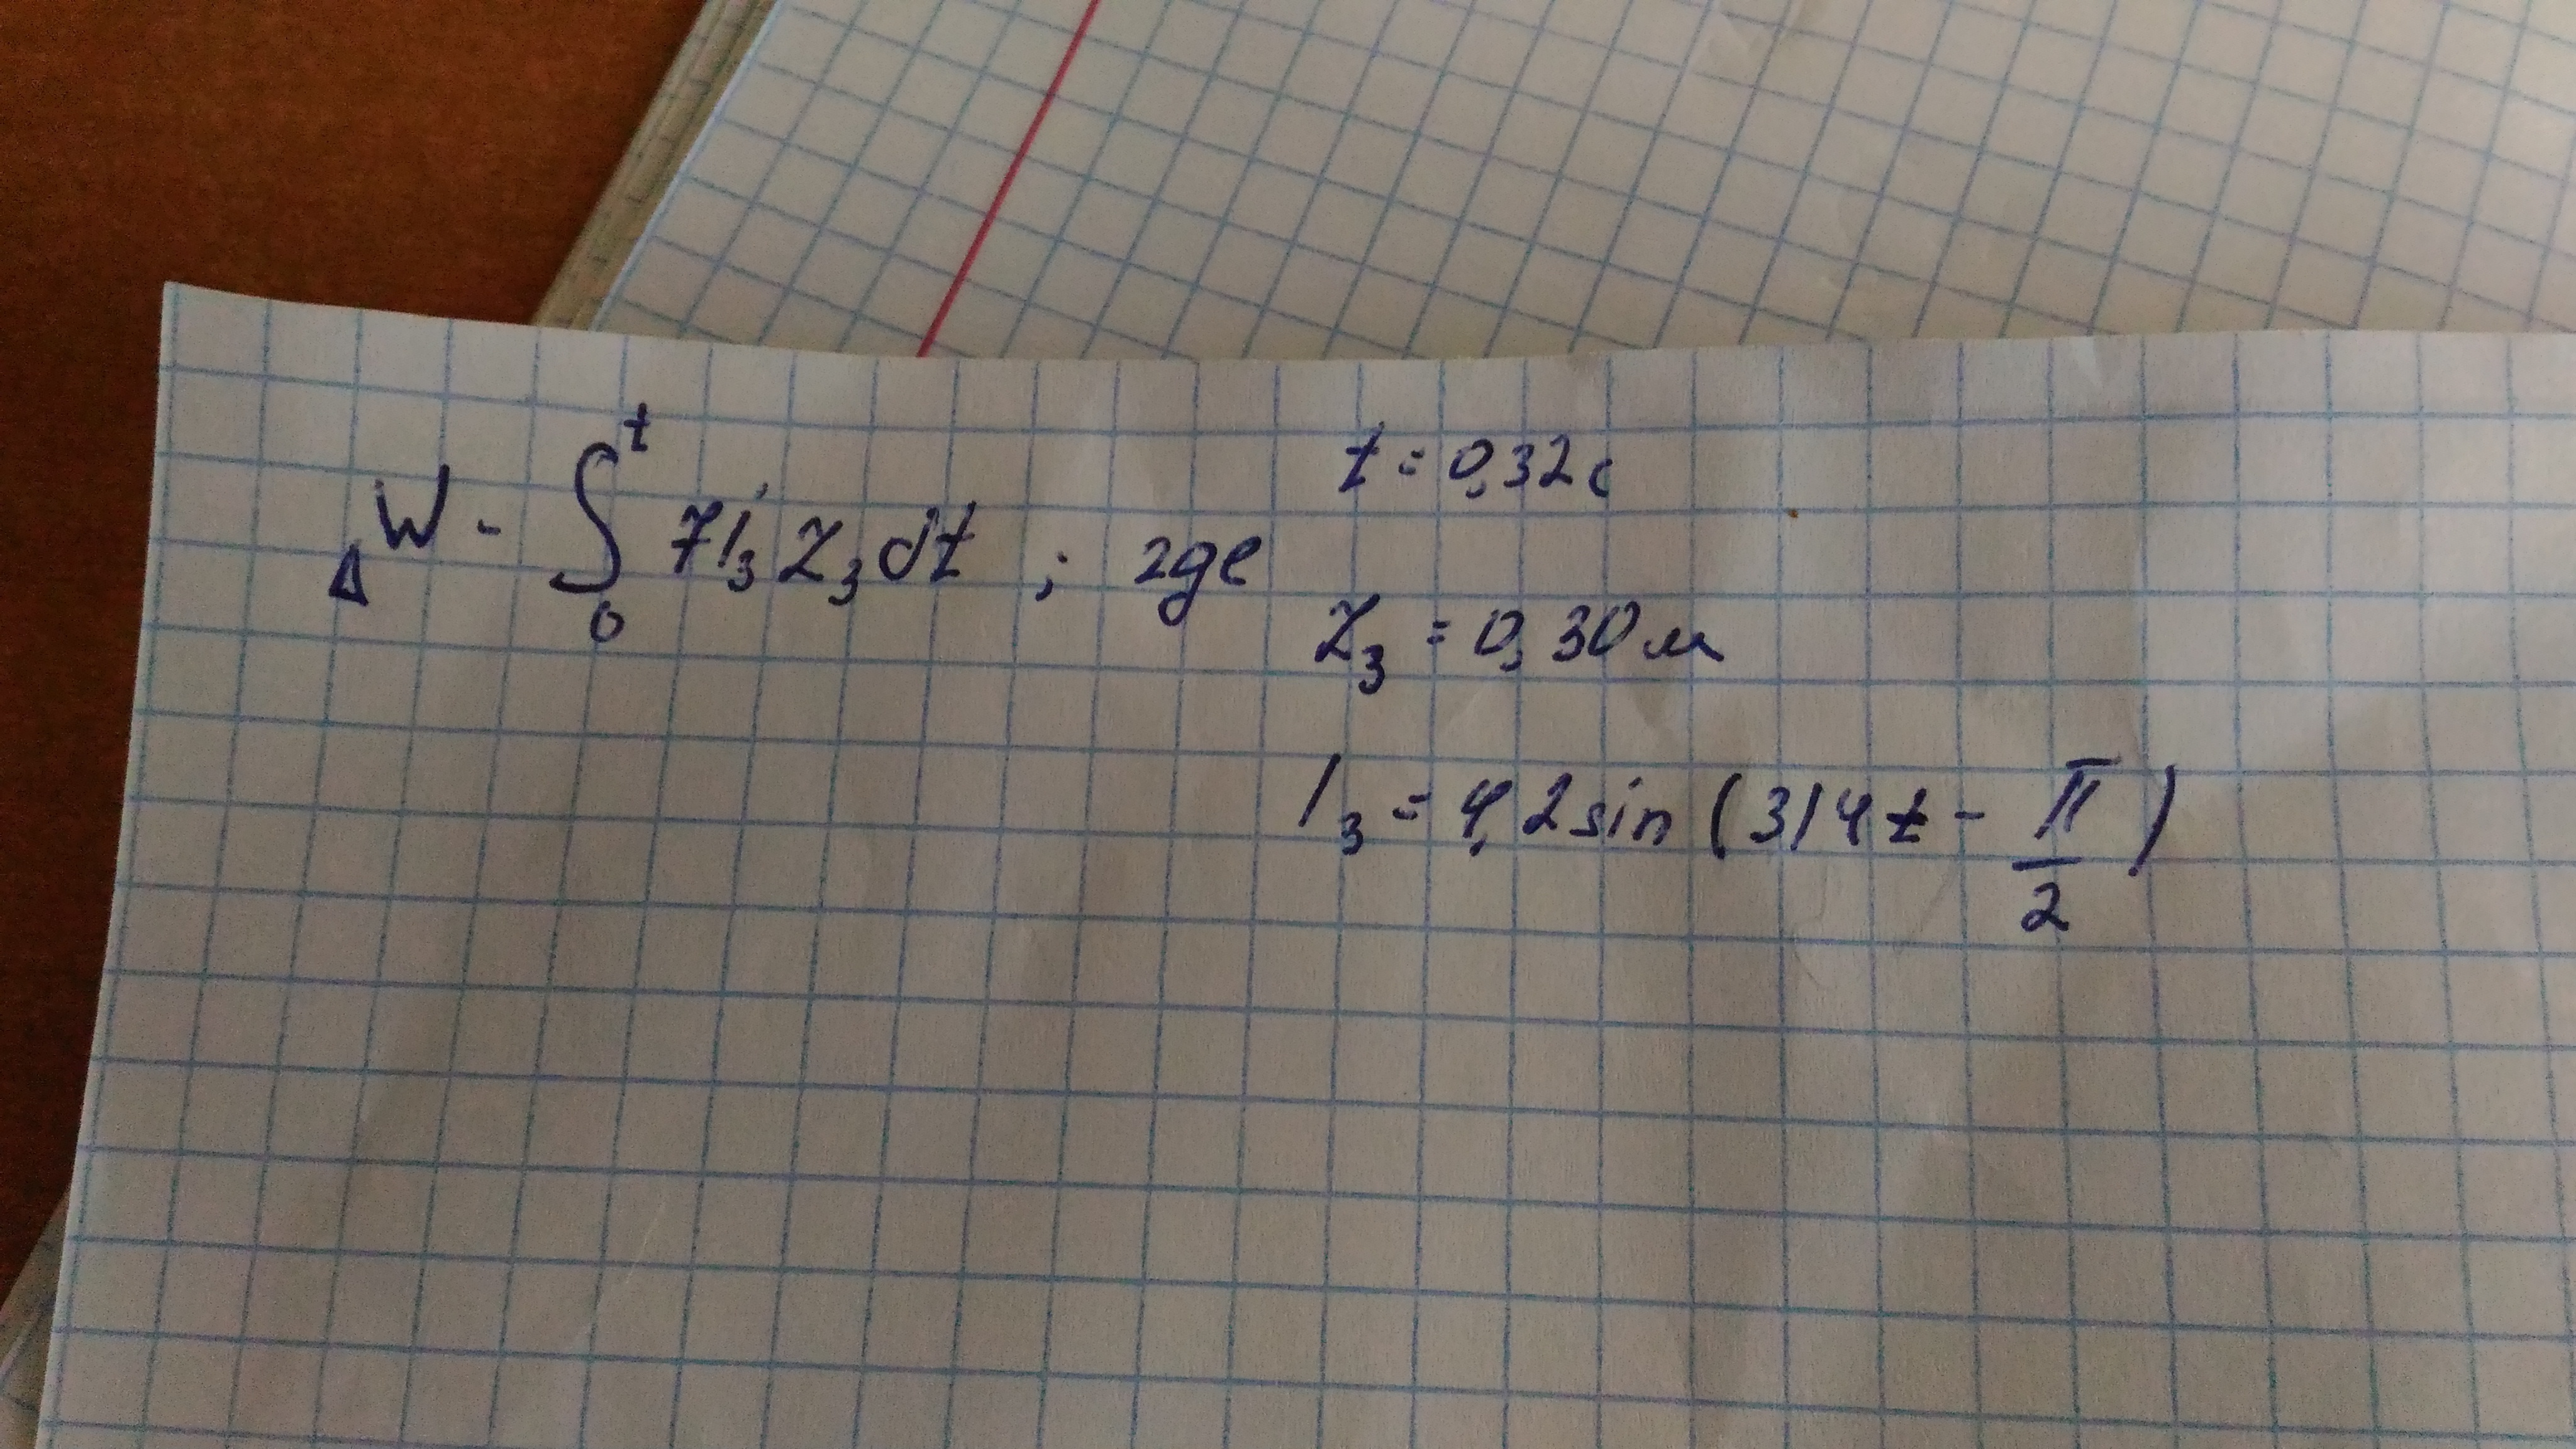 ΔW - ∫₀ᵗ 7i₃ Z₃ dt ; где
t = 0,32 с
Z₃ = 0,30 м
I₃ = 4,2 sin (314t - π/2)